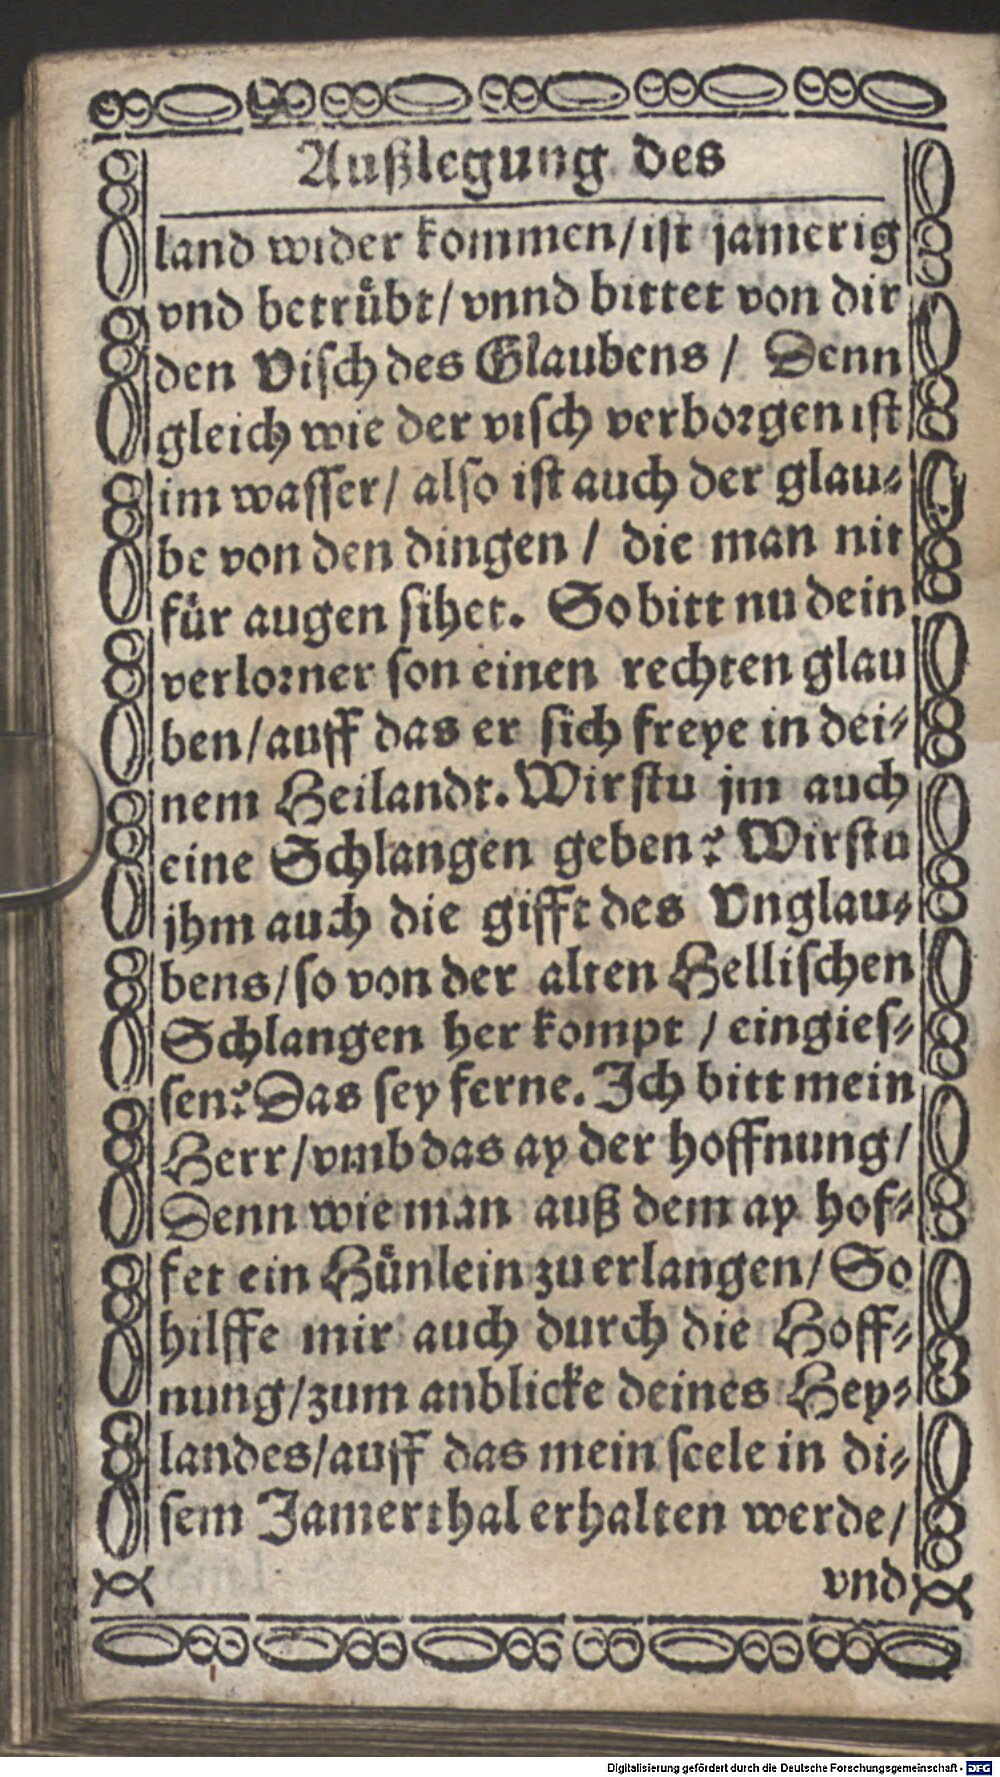 Außlegung des
land wider kommen/ist jamerig
vnd betrübt/vnnd bittet von dir
den Visch des Glaubens / Denn
gleich wie der visch verborgen ist
im wasser/ also ist auch der glau-
be von den dingen / die man nit
für augen sihet. So bitt nu dein
verlorner son einen rechten glau
ben/auff das er sich freye in dei-
nem Heilandt. Wirstu jm auch
eine Schlangen geben? Wirstu
jhm auch die gifft des Vnglau-
bens/so von der alten Hellischen
Schlangen her kompt / eingies-
sen? Das sey ferne. Ich bitt mein
Herr/vmb das ay der hoffnung/
Denn wie man auß dem ay hof-
fet ein Hünlein zu erlangen/ So
hilffe mir auch durch die Hoff-
nung/zum anblicke deines Hey-
landes/auff das mein seele in di-
sem Jamerthal erhalten werde/
vnd
Digitalisierung gefördert durch die Deutsche Forschungsgemeinschaft - DFG